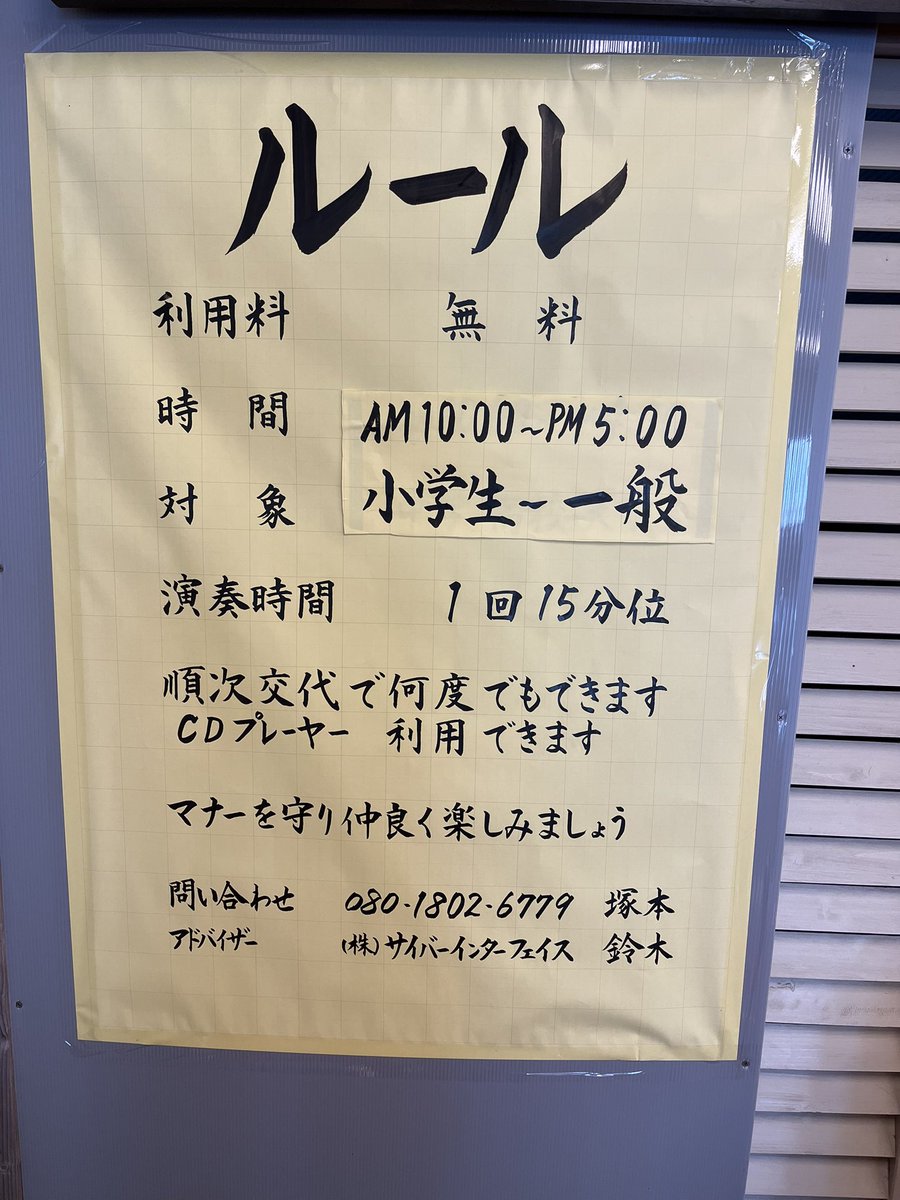 ルール
利用料 無料
時間 AM10:00~PM5:00
対象 小学生~一般
演奏時間 1回15分位
順次交代で何度でもできます
CDプレーヤー 利用できます
マナーを守り仲良く楽しみましょう
問い合わせ 080-1802-6779 塚本
アドバイザー (株)サイバーインターフェイス 鈴木